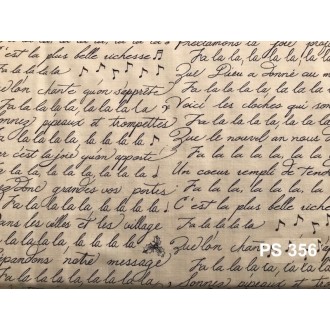 C'est la plus belle richesse
Fa la la la la
Qu'on chante, qu'on s'apprête
Fa la la la la, la la la la
Sonnez pipeaux et trompettes
Fa la la la la, la la la la
Car c'est la joie qu'on apporte
Fa la la la la, la la la la
grandes vos portes
Fa la la la la, la la la la
Dans les villes et les village
Fa la la la la, la la la la
Répandons notre message
Fa la la la la, la la la la
Proclamons la joie
Fa la la la la, la la la
Que Dieu a donné au
Fa la la la la, la la
Voici les cloches qui son
Fa la la la la, la la la
Que le nouvel an nous
Fa la la la la, la la
Un coeur rempli de Tend
Fa la la la la, la la
C'est la plus belle riche
Fa la la la la
Qu'on chante
Fa la la la la, la la
Sonnez pipeaux et trom
PS 356